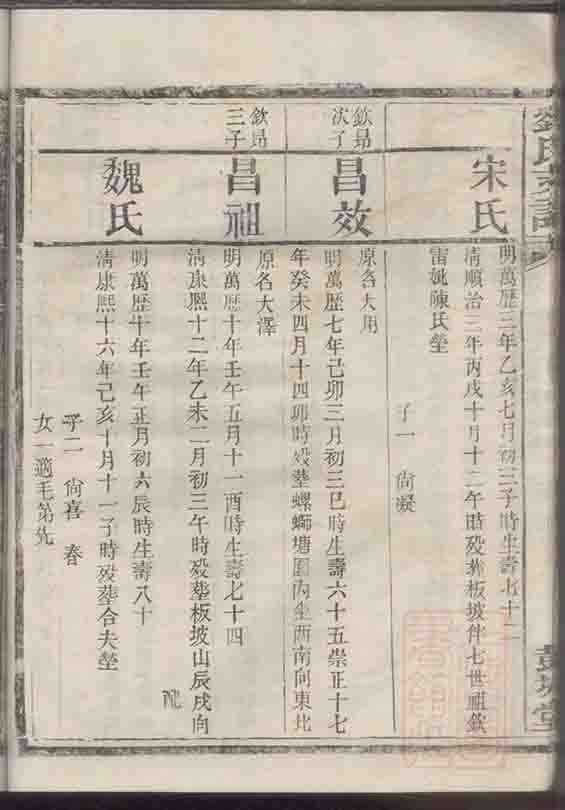 宋氏
明萬歷三年乙亥七月初三子時生壽七十二
清順治三年丙戌十月十二午時殁葬板坡伴七世祖欽
雷妣陳氏塋
子一 尙凝
欽昂
次子
昌效
原名大用
明萬歷七年己卯三月初三巳時生壽六十五崇正十七
年癸未四月十四卯時殁塟螺螄塘園內坐西南向東北
欽昂
三子
昌祖
原名大澤
明萬歷十年壬午五月十一酉時生壽七十四
淸康熙十二年乙未二月初三午時殁塟板坡山辰戌向
配
魏氏
明萬歷十年壬午正月初六辰時生壽八十
淸康熙十六年己亥十月十一子時殁塟合夫塋
子二 尙喜 春
女一適毛第先